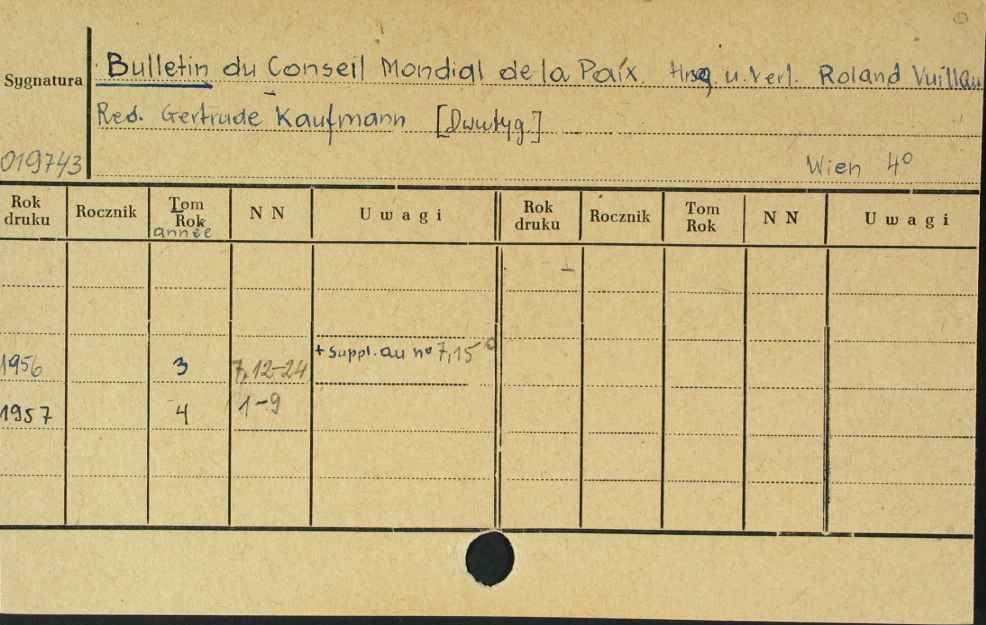 Sygnatura
Bulletin du Conseil Mondial de la Paix. Hrsg. u. Verl. Roland Vuillau
Red. Gertrude Kaufmann [Dwutyg.]
019743
Wien 4°
Rok druku Rocznik Tom Rok année N N Uwagi Rok druku Rocznik Tom Rok N N Uwagi
1956 3 7,12-24 + suppl. au n° 7,15
1957 4 1-9